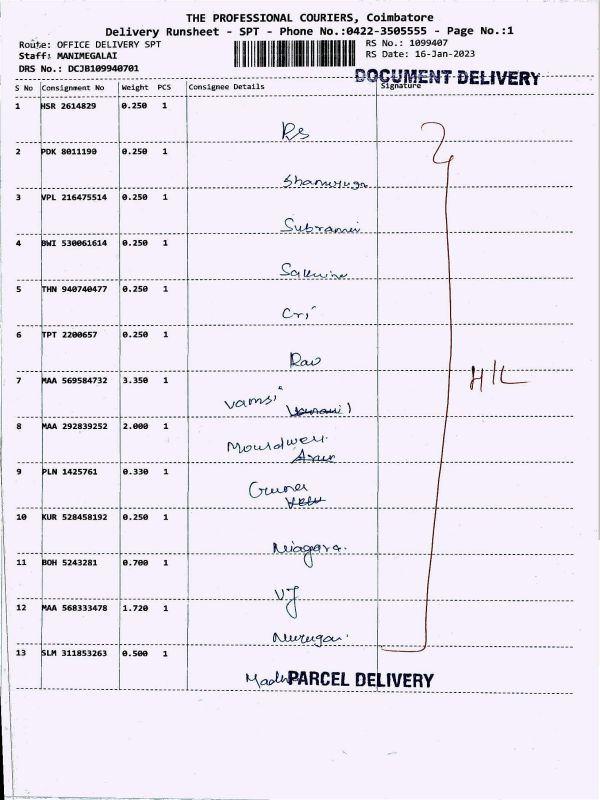 THE PROFESSIONAL COURIERS, Coimbatore
Delivery Runsheet - SPT - Phone No.:0422-3505555 - Page No.:1
Route: OFFICE DELIVERY SPT
RS No.: 1099407
Staff: MANIMEGALAI
RS Date: 16-Jan-2023
DRS No.: DCJB109940701
DOCUMENT DELIVERY
S No Consignment No Weight PCS Consignee Details Signature
1 HSR 2614829 0.250 1
Rs
2 PDK 8011190 0.250 1
3 VPL 216475514 0.250 1
4 BWI 530061614 0.250 1
5 THN 940740477 0.250 1
6 TPT 2200657 0.250 1
Rao
7 MAA 569584732 3.350 1
H/L
Vamsi
8 MAA 292839252 2.000 1
9 PLN 1425761 0.330 1
10 KUR 528458192 0.250 1
Niagara.
11 BOH 5243281 0.700 1
VJ
12 MAA 568333478 1.720 1
Murugan.
13 SLM 311853263 0.500 1
PARCEL DELIVERY